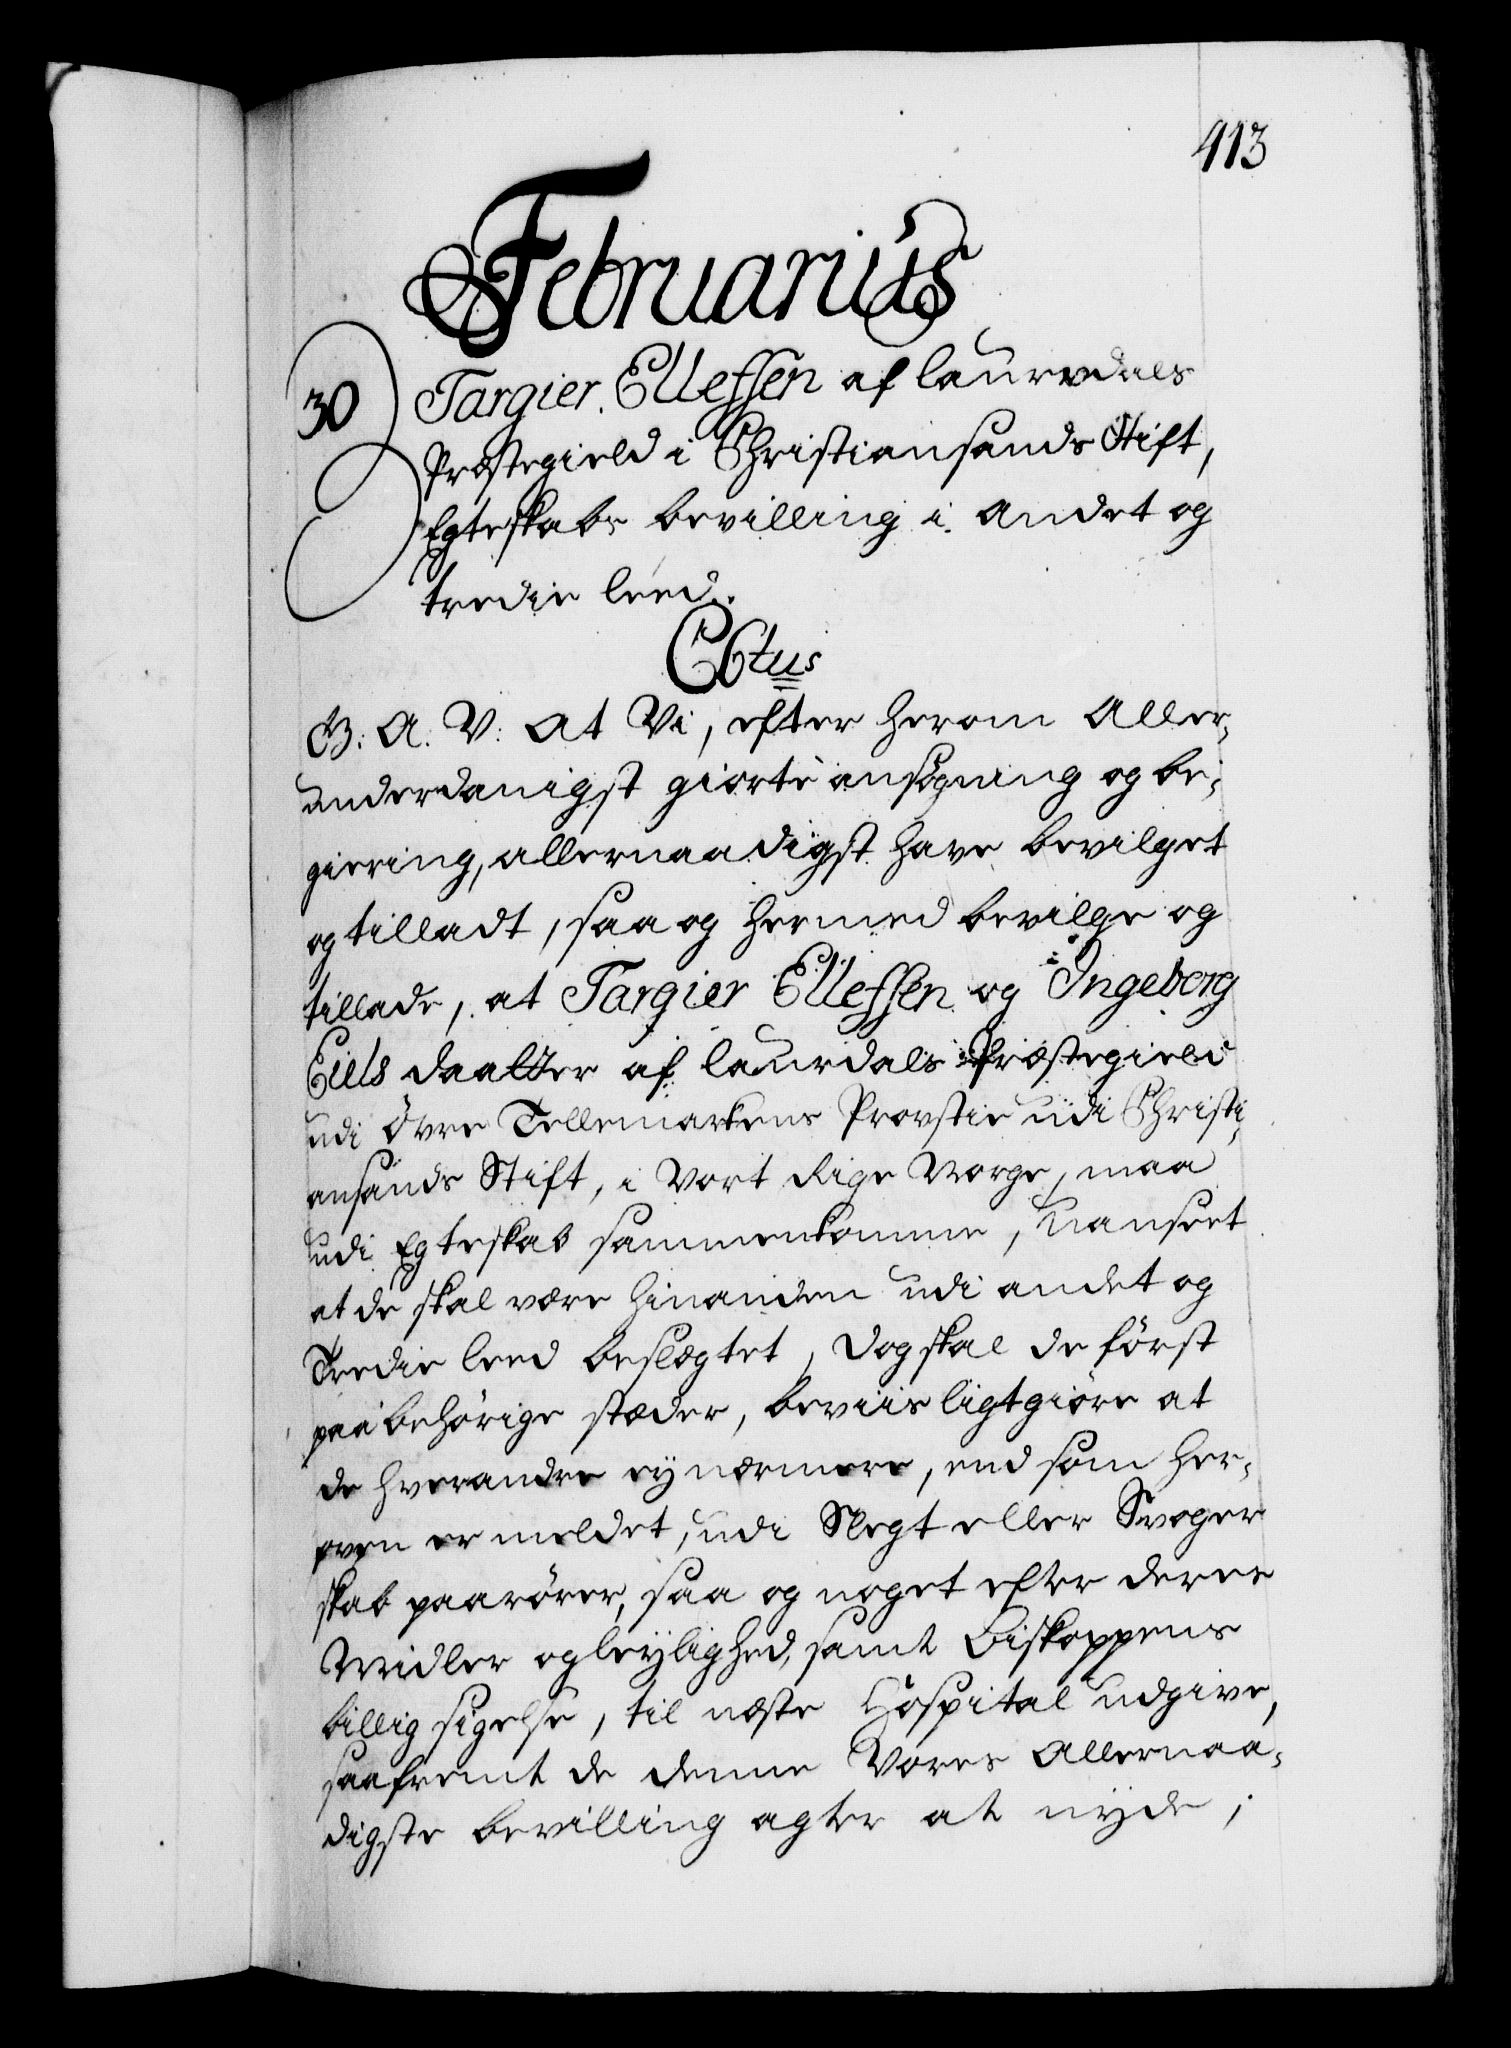 413
Februarius
30
Targier Ellefssen af laurvdals
Præstegield i Christiansands Stift,
Egteskabs bevilling i andet og
tredie leed.
CGtus
G: A: V: At Vi, efter herom Aller-
underdanigst giorte ansøgning og be-
giering, allernaadigst have bevilget
og tilladt, saa og hermed bevilge og
tillade, at Targier Ellefssen og Ingeborg
Eiels daatter af laurdals Præstegield
udi Øvre Tellemarkens Provstie udi Christi-
ansands Stift, i Vort Rige Norge, maa
udi Egteskab sammenkomme, uanseet
at de skal være hinanden udi andet og
Tredie leed beslægtet, dog skal de først
paa behørige stæder, beviisligtgiøre at
de hverandre ey nærmere, end som her-
oven er meldet, udi Slegt eller Svoger
skab paarører, saa og noget efter deres
Midler og leylighed, samt Biskoppens
billig sigelse, til næste Hospital udgive,
saafremt de denne Vores Allernaa-
digste bevilling agter at nyde;